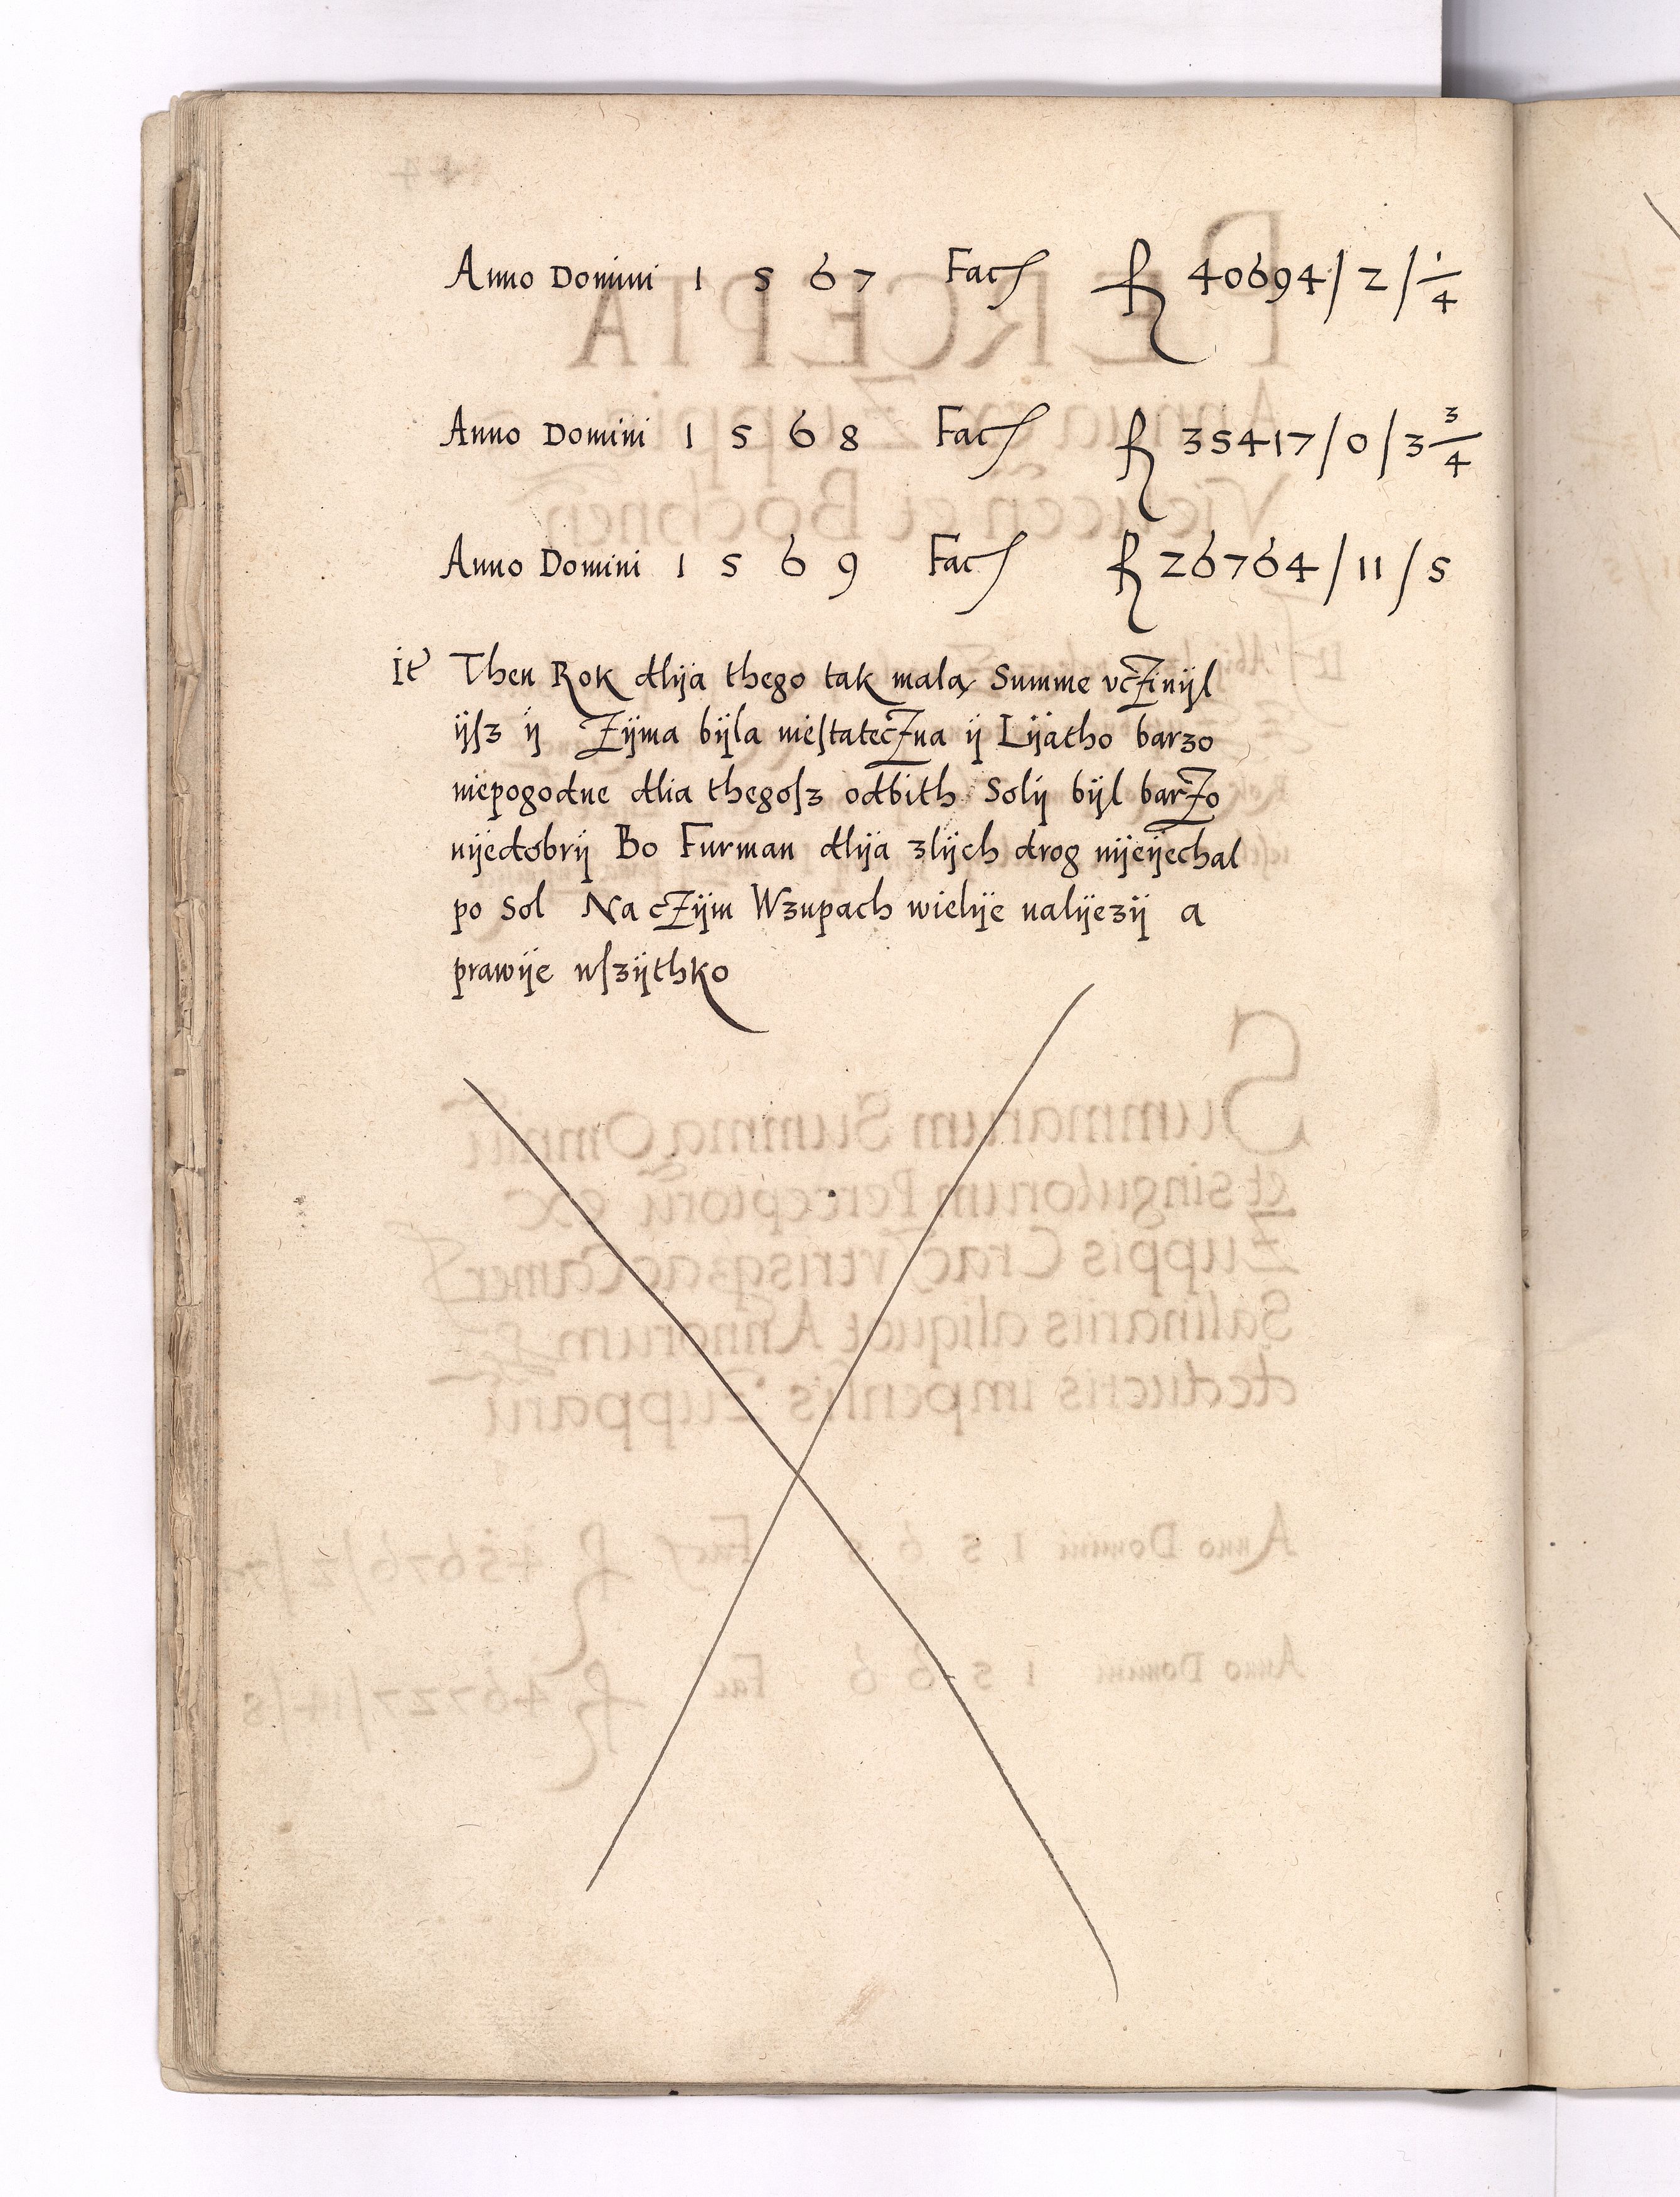 Anno Domini 1 5 6 7 Fac fl 40694/2/1/4
Anno Domini 1 5 6 8 Fac fl 35417/0/3 3/4
Anno Domini 1 5 6 9 Fac fl 26764/11/5
It Then Rok dlÿa thego tak malą Summe vcżinÿl
ÿſz ÿ Zÿma bÿla nieſtatecżna ÿ Lÿatho barzo
niepogodne dlia thegoſz odbith Solÿ bÿl barżo
nÿedobrÿ Bo Furman dlÿa zlÿch drog nÿeÿechal
po Sol Na cżÿm Wzupach wielÿe nalÿezÿ a
prawÿe wſzÿthko